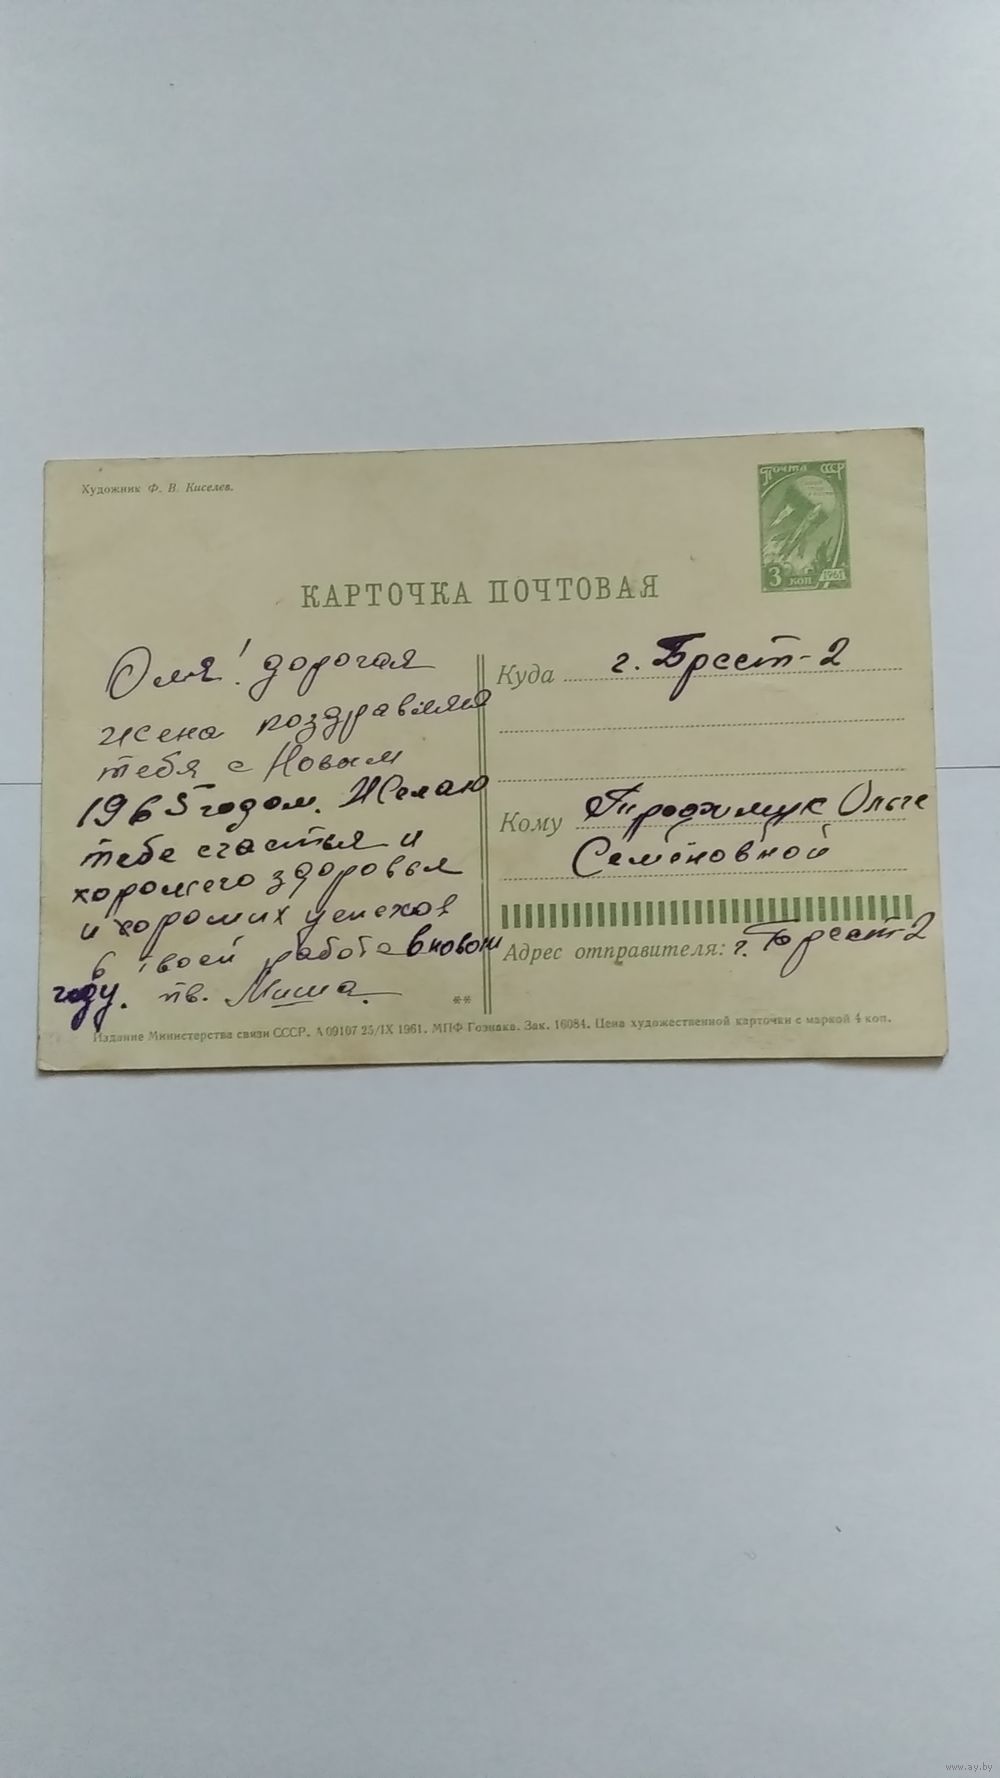 Художник Ф. В. Киселев.
Почта СССР
3 коп 1961
КАРТОЧКА ПОЧТОВАЯ
Оля! дорогая
жена поздравляя
тебя с Новым
1965 годом. Желаю
тебе счастья и
хорошего здоровья
и хороших успехов
в твоей работе в новом
году. тв. Миша.
**
Куда г. Брест-2
Кому Ольге
Семёновной
Адрес отправителя: г. Брест-2
Издание Министерства связи СССР. А 09107 25/IX 1961. МПФ Гознака. Зак. 16084. Цена художественной карточки с маркой 4 коп.
www.ay.by